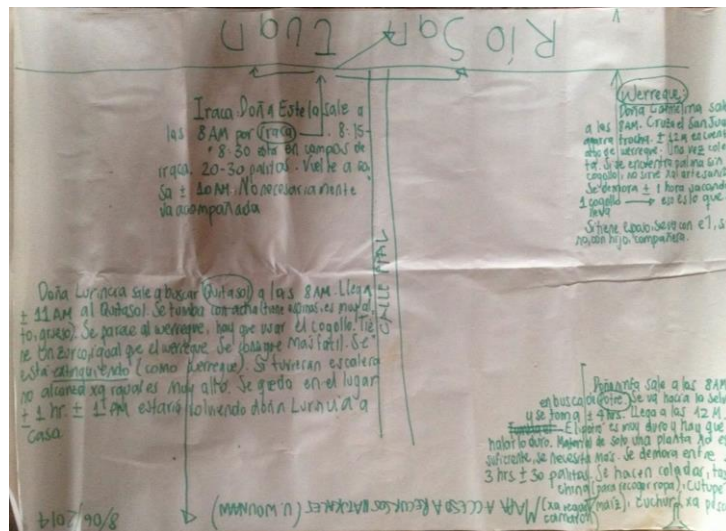 Río San Juan
Iraca: Doña Estela sale a
las 8AM por iraca 8:15-
8:30 está en campos de
iraca. 20-30 palitos. Vuelve a ca
sa ± 10AM. No necesariamente
va acompañada
Werregue:
Doña sa
a las 8AM. Cruza el San Jua
agarra trocha. ± 12M encuen
de werregue. Una vez
ta. Si se encuentra palma sin
cogollo, no sirve xa artesaní
Se demora ± 1 hora sacand
1 cogollo → eso es lo que
lleva
Si tiene esposo, se va con el, si
no, con hijo, compañera.
CALLE PPAL
Doña sale a buscar Quitasol a las 8AM. Llega
± 11AM al Quitasol. Se tumba con acha (tiene espinas, es muy al
to, grueso). Se parece al werregue, hay que usar el cogollo. Tie
ne un zurco, igual que el werregue. Se consigue mas facil. Se
está extinguiendo (como werregue). Si tuvieran escalera
no alcanza xq igual es muy alto. Se queda en el lugar
± 1 hr. ± 1 PM estaría volviendo doña a
casa
sale a las 8AM
en busca de Potre. Se va hacia la selv
y se toma ± 4 hrs. Llega a las 12 M
El potre es muy duro y hay que
halarlo duro. Material de solo una planta no es
suficiente, se necesita más. Se demora entre
3 hrs ± 30 palitos. Se hacen colador,
china (para recoger ropa),
(xa regar maíz), xa
camarón
MAPA ACCESO A RECURSOS NATURALES (U. WOUNAAN)
8/06/2017